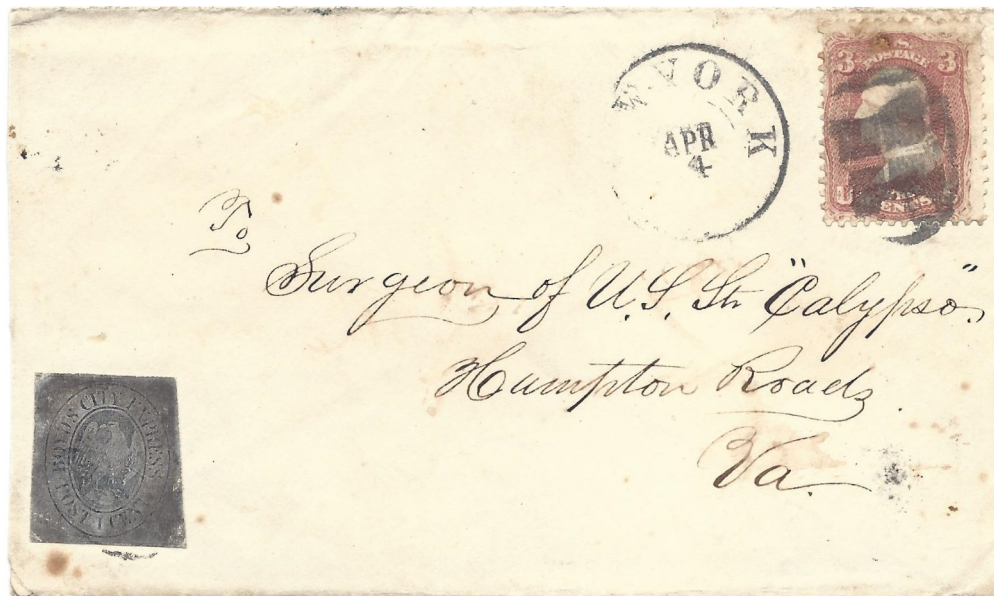 W-YORK
APR
4
U.S.
POSTAGE
3 3
U
CENTS
To
Surgeon of U.S. Str "Calypso".
Hampton Roads.
Va.
BOYD'S CITY EXPRESS
POST 1 CENT